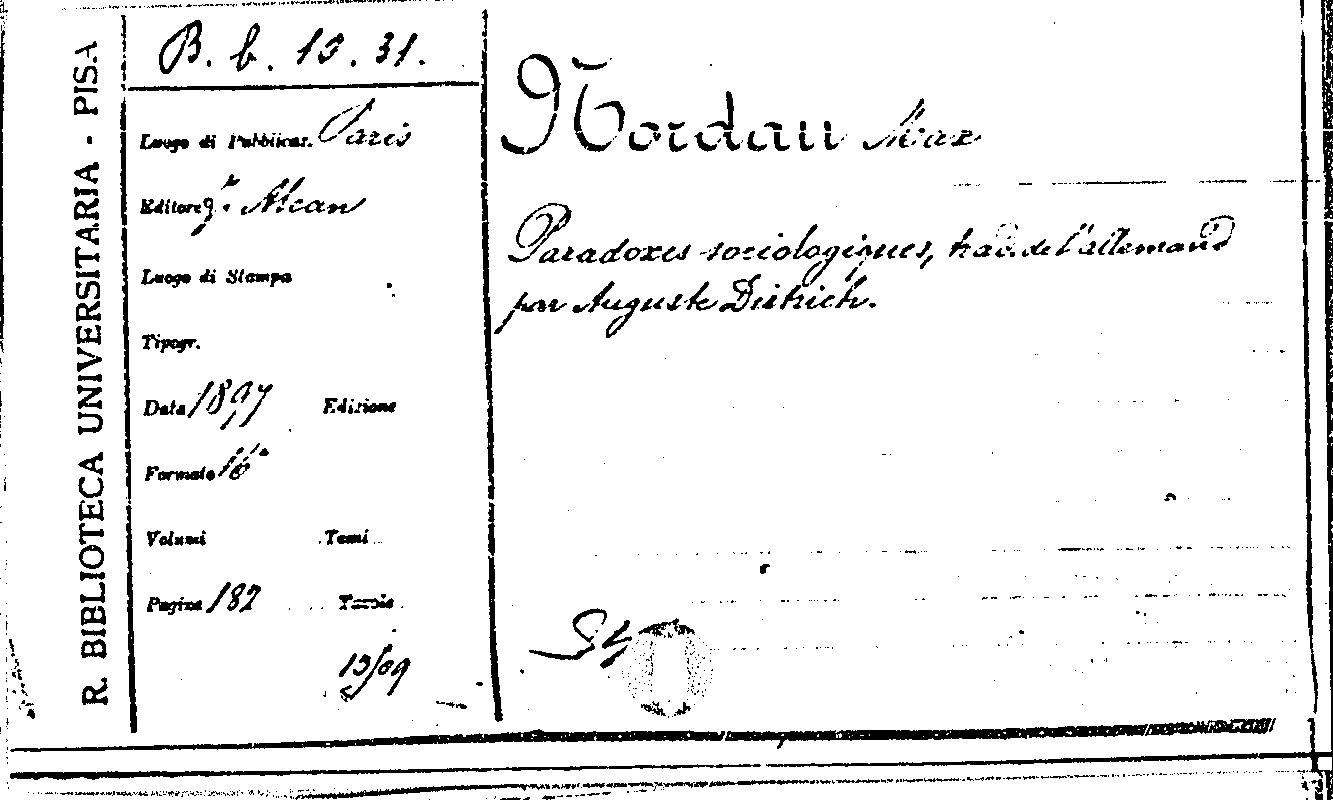 R. BIBLIOTECA UNIVERSITARIA - PISA
B. b. 10. 31.
Luogo di Pubblicaz. Paris
Editore Alcan
Luogo di Stampa
Tipogr.
Data 1897 Edizione
Formato 16°
Volumi Tomi
Pagine 182 Tavole
Nordau Max
Paradoxes sociologiques, trad. de l'allemand
par Auguste Dietrich.